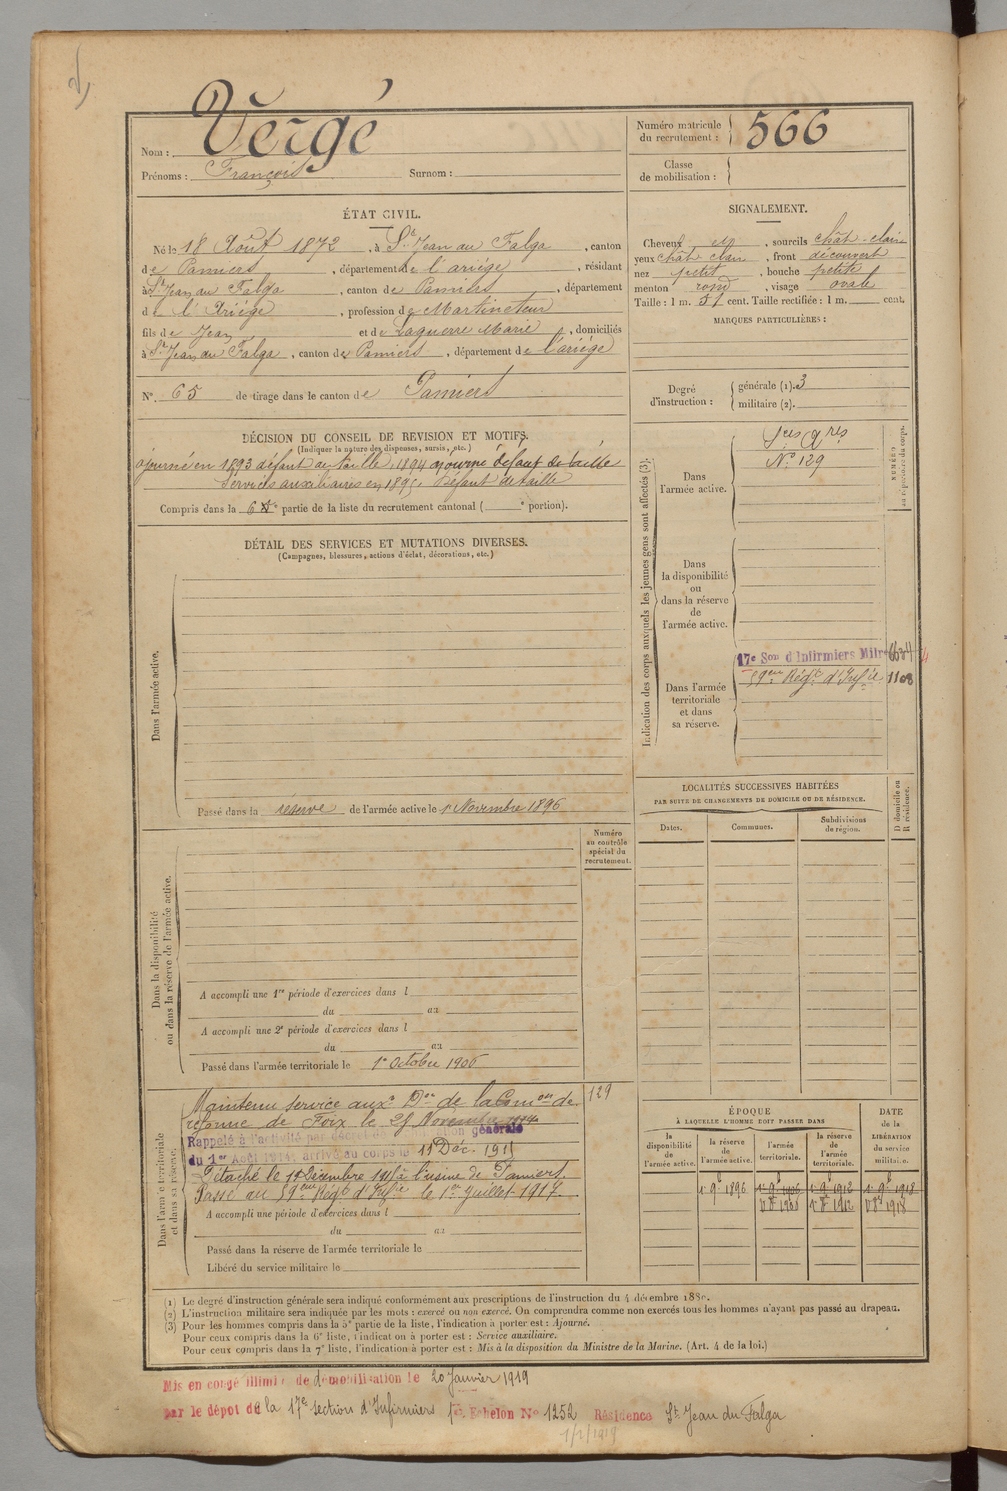 Vergé
Nom :
Prénoms : François Surnom :
Numéro matricule du recrutement : 566
Classe de mobilisation :
ÉTAT CIVIL.
Né le 18 Août 1872, à St Jean du Falga, canton
de Pamiers, département de l'ariège, résidant
à St Jean du Falga, canton de Pamiers, département
de l'Ariège, profession de Martineteur
fils de Jean et de Laguerre Marie, domiciliés
à St Jean du Falga, canton de Pamiers, département de l'ariège
N° 65 de tirage dans le canton de Pamiers
SIGNALEMENT.
Cheveux, sourcils chât-clair
yeux chât clair, front découvert
nez petit, bouche petite
menton rond, visage ovale
Taille : 1 m. 51 cent. Taille rectifiée : 1 m. cent.
MARQUES PARTICULIÈRES :
Degré d'instruction : générale (1). 3
militaire (2).
DÉCISION DU CONSEIL DE REVISION ET MOTIFS.
(Indiquer la nature des dispenses, sursis, etc.)
ajourné en 1893 défaut de taille, 1894 ajourné défaut de taille
Services auxiliaires en 1895, Défaut de taille
Compris dans la 6e partie de la liste du recrutement cantonal ( e portion).
DÉTAIL DES SERVICES ET MUTATIONS DIVERSES.
(Campagnes, blessures, actions d'éclat, décorations, etc.)
Dans l'armée active.
Passé dans la réserve de l'armée active le 1r Novembre 1896
Indication des corps auxquels les jeunes gens sont affectés (3).
NUMÉRO au répertoire du corps.
Dans l'armée active.
Sces Ares
N° 129
Dans la disponibilité ou dans la réserve de l'armée active.
Dans l'armée territoriale et dans sa réserve.
17e Son d'Infirmiers Milres
59eme Régt d'Infie 1108
LOCALITÉS SUCCESSIVES HABITÉES
PAR SUITE DE CHANGEMENTS DE DOMICILE OU DE RÉSIDENCE.
D domicile ou R résidence.
Dates. Communes. Subdivisions de région.
Numéro au contrôle spécial du recrutement.
Dans la disponibilité ou dans la réserve de l'armée active.
A accompli une 1re période d'exercices dans l
du au
A accompli une 2e période d'exercices dans l
du au
Passé dans l'armée territoriale le 1r Octobre 1906
Dans l'armée territoriale et dans sa réserve.
Maintenu service auxe Don de la Comon de 129
réforme de Foix le 25 Novembre 1914
Rappelé à l'activité par décret de mobilisation générale
du 1er Août 1914; arrivé au corps le 11 Déc. 1915
Détaché le 11 Décembre 1915 à l'usine de Pamiers.
Passé au 59eme Régt d'Infie le 1er Juillet 1917.
A accompli une période d'exercices dans l
du au
Passé dans la réserve de l'armée territoriale le
Libéré du service militaire le
ÉPOQUE
À LAQUELLE L'HOMME DOIT PASSER DANS
DATE de la LIBÉRATION du service militaire.
la disponibilité de l'armée active. la réserve de l'armée active. l'armée territoriale. la réserve de l'armée territoriale.
1r 9b 1896 1r 9b 1906 1r 9b 1912 1r 9b 1918
(1) Le degré d'instruction générale sera indiqué conformément aux prescriptions de l'instruction du 4 décembre 1889.
(2) L'instruction militaire sera indiquée par les mots : exercé ou non exercé. On comprendra comme non exercés tous les hommes n'ayant pas passé au drapeau.
(3) Pour les hommes compris dans la 5e partie de la liste, l'indication à porter est : Ajourné.
Pour ceux compris dans la 6e liste, l'indication à porter est : Service auxiliaire.
Pour ceux compris dans la 7e liste, l'indication à porter est : Mis à la disposition du Ministre de la Marine. (Art. 4 de la loi.)
Mis en congé illimité de démobilisation le 20 Janvier 1919
par le dépôt de la 17e section d'Infirmiers Echelon N° 1252 Résidence St Jean du Falga
1/2/1919